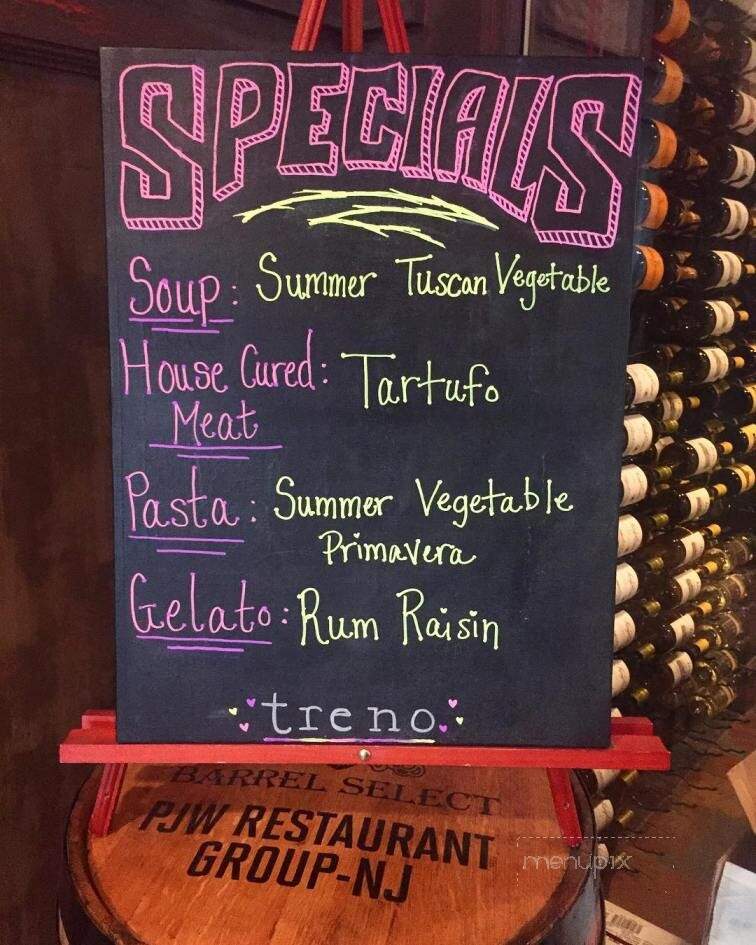 SPECIALS
Soup: Summer Tuscan Vegetable
House Cured: Tartufo
Meat
Pasta: Summer Vegetable
Primavera
Gelato: Rum Raisin
treno
BARREL SELECT
PJW RESTAURANT
GROUP-NJ
menupix